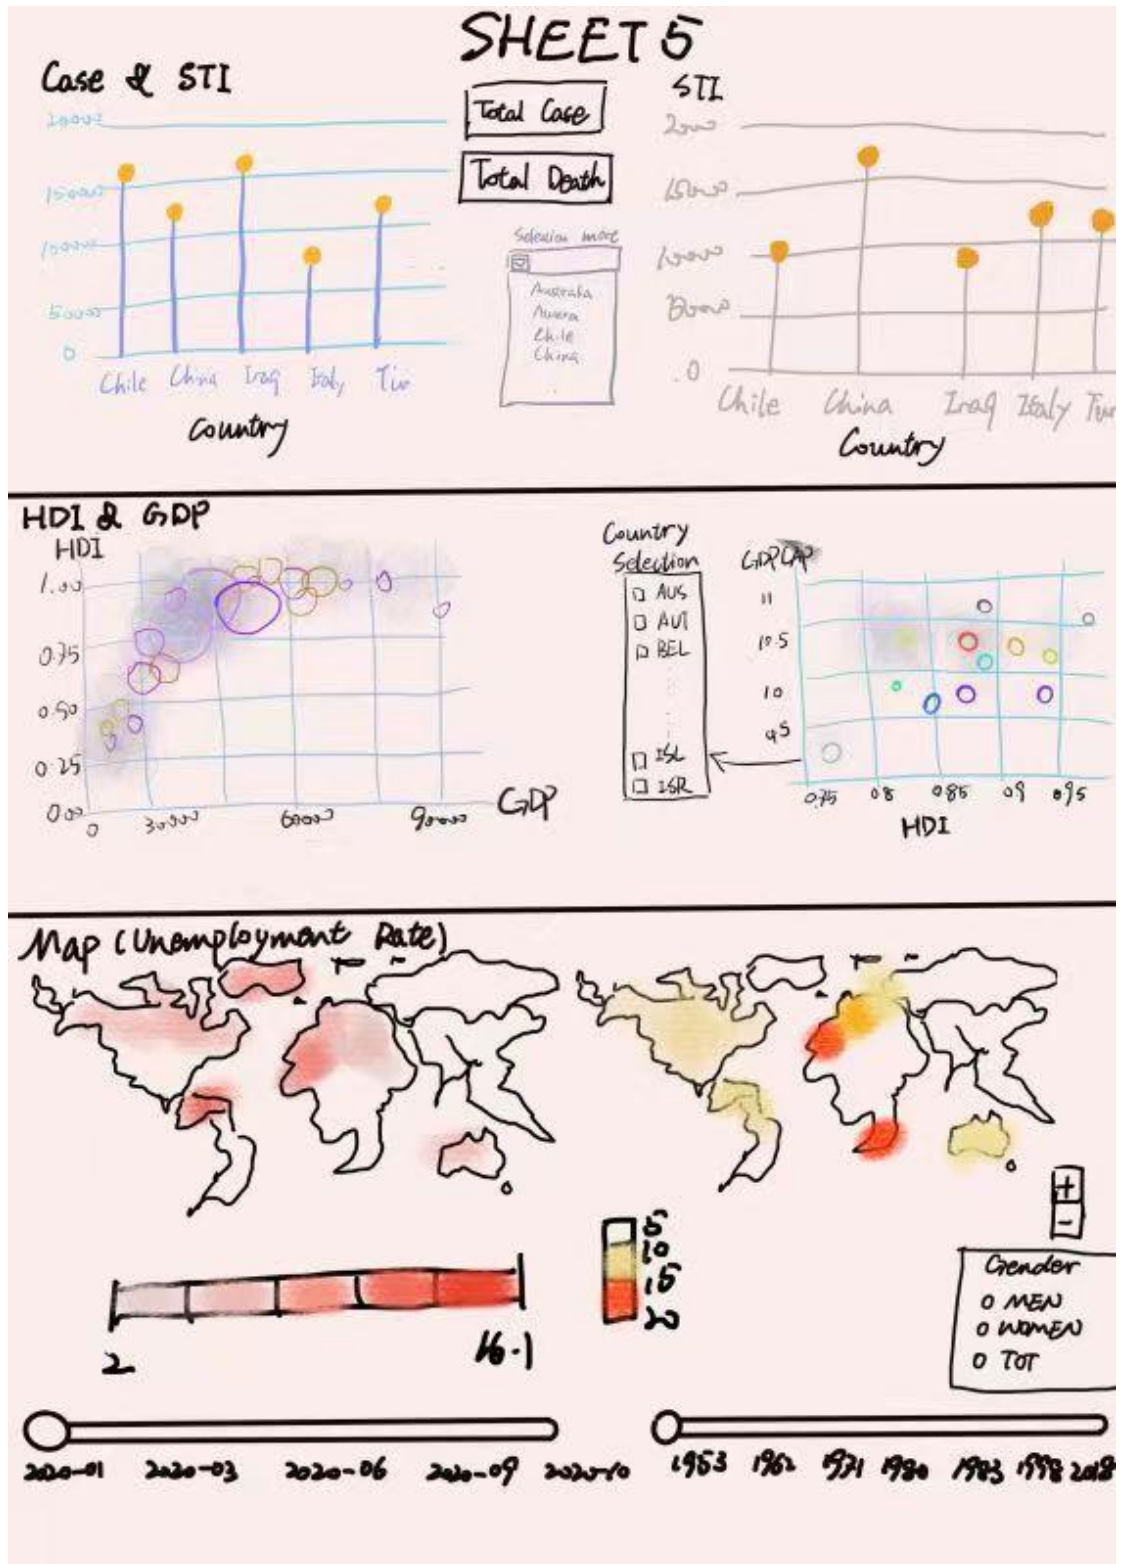 SHEET 5
Case & STI
20000
150000
100000
50000
0
Chile China Iraq Italy
Country
Total Case
Total Death
Selection more
Australia
Chile
China
STI
2000
15000
10000
.0
Chile China Iraq Italy
Country
HDI & GDP
HDI
1.00
0.75
0.50
0.25
0.00
0 30000 60000 90000
GDP
Country
Selection
AUS
AUT
BEL
ISL
ISR
GDPCAP
11
10.5
10
9.5
0.75 0.8 0.85 0.9 0.95
HDI
Map (Unemployment Rate)
2 16.1
5
10
15
20
+
-
Gender
MEN
WOMEN
TOT
2020-01 2020-03 2020-06 2020-09 2020-10
1953 1962 1971 1980 1983 1998 2018